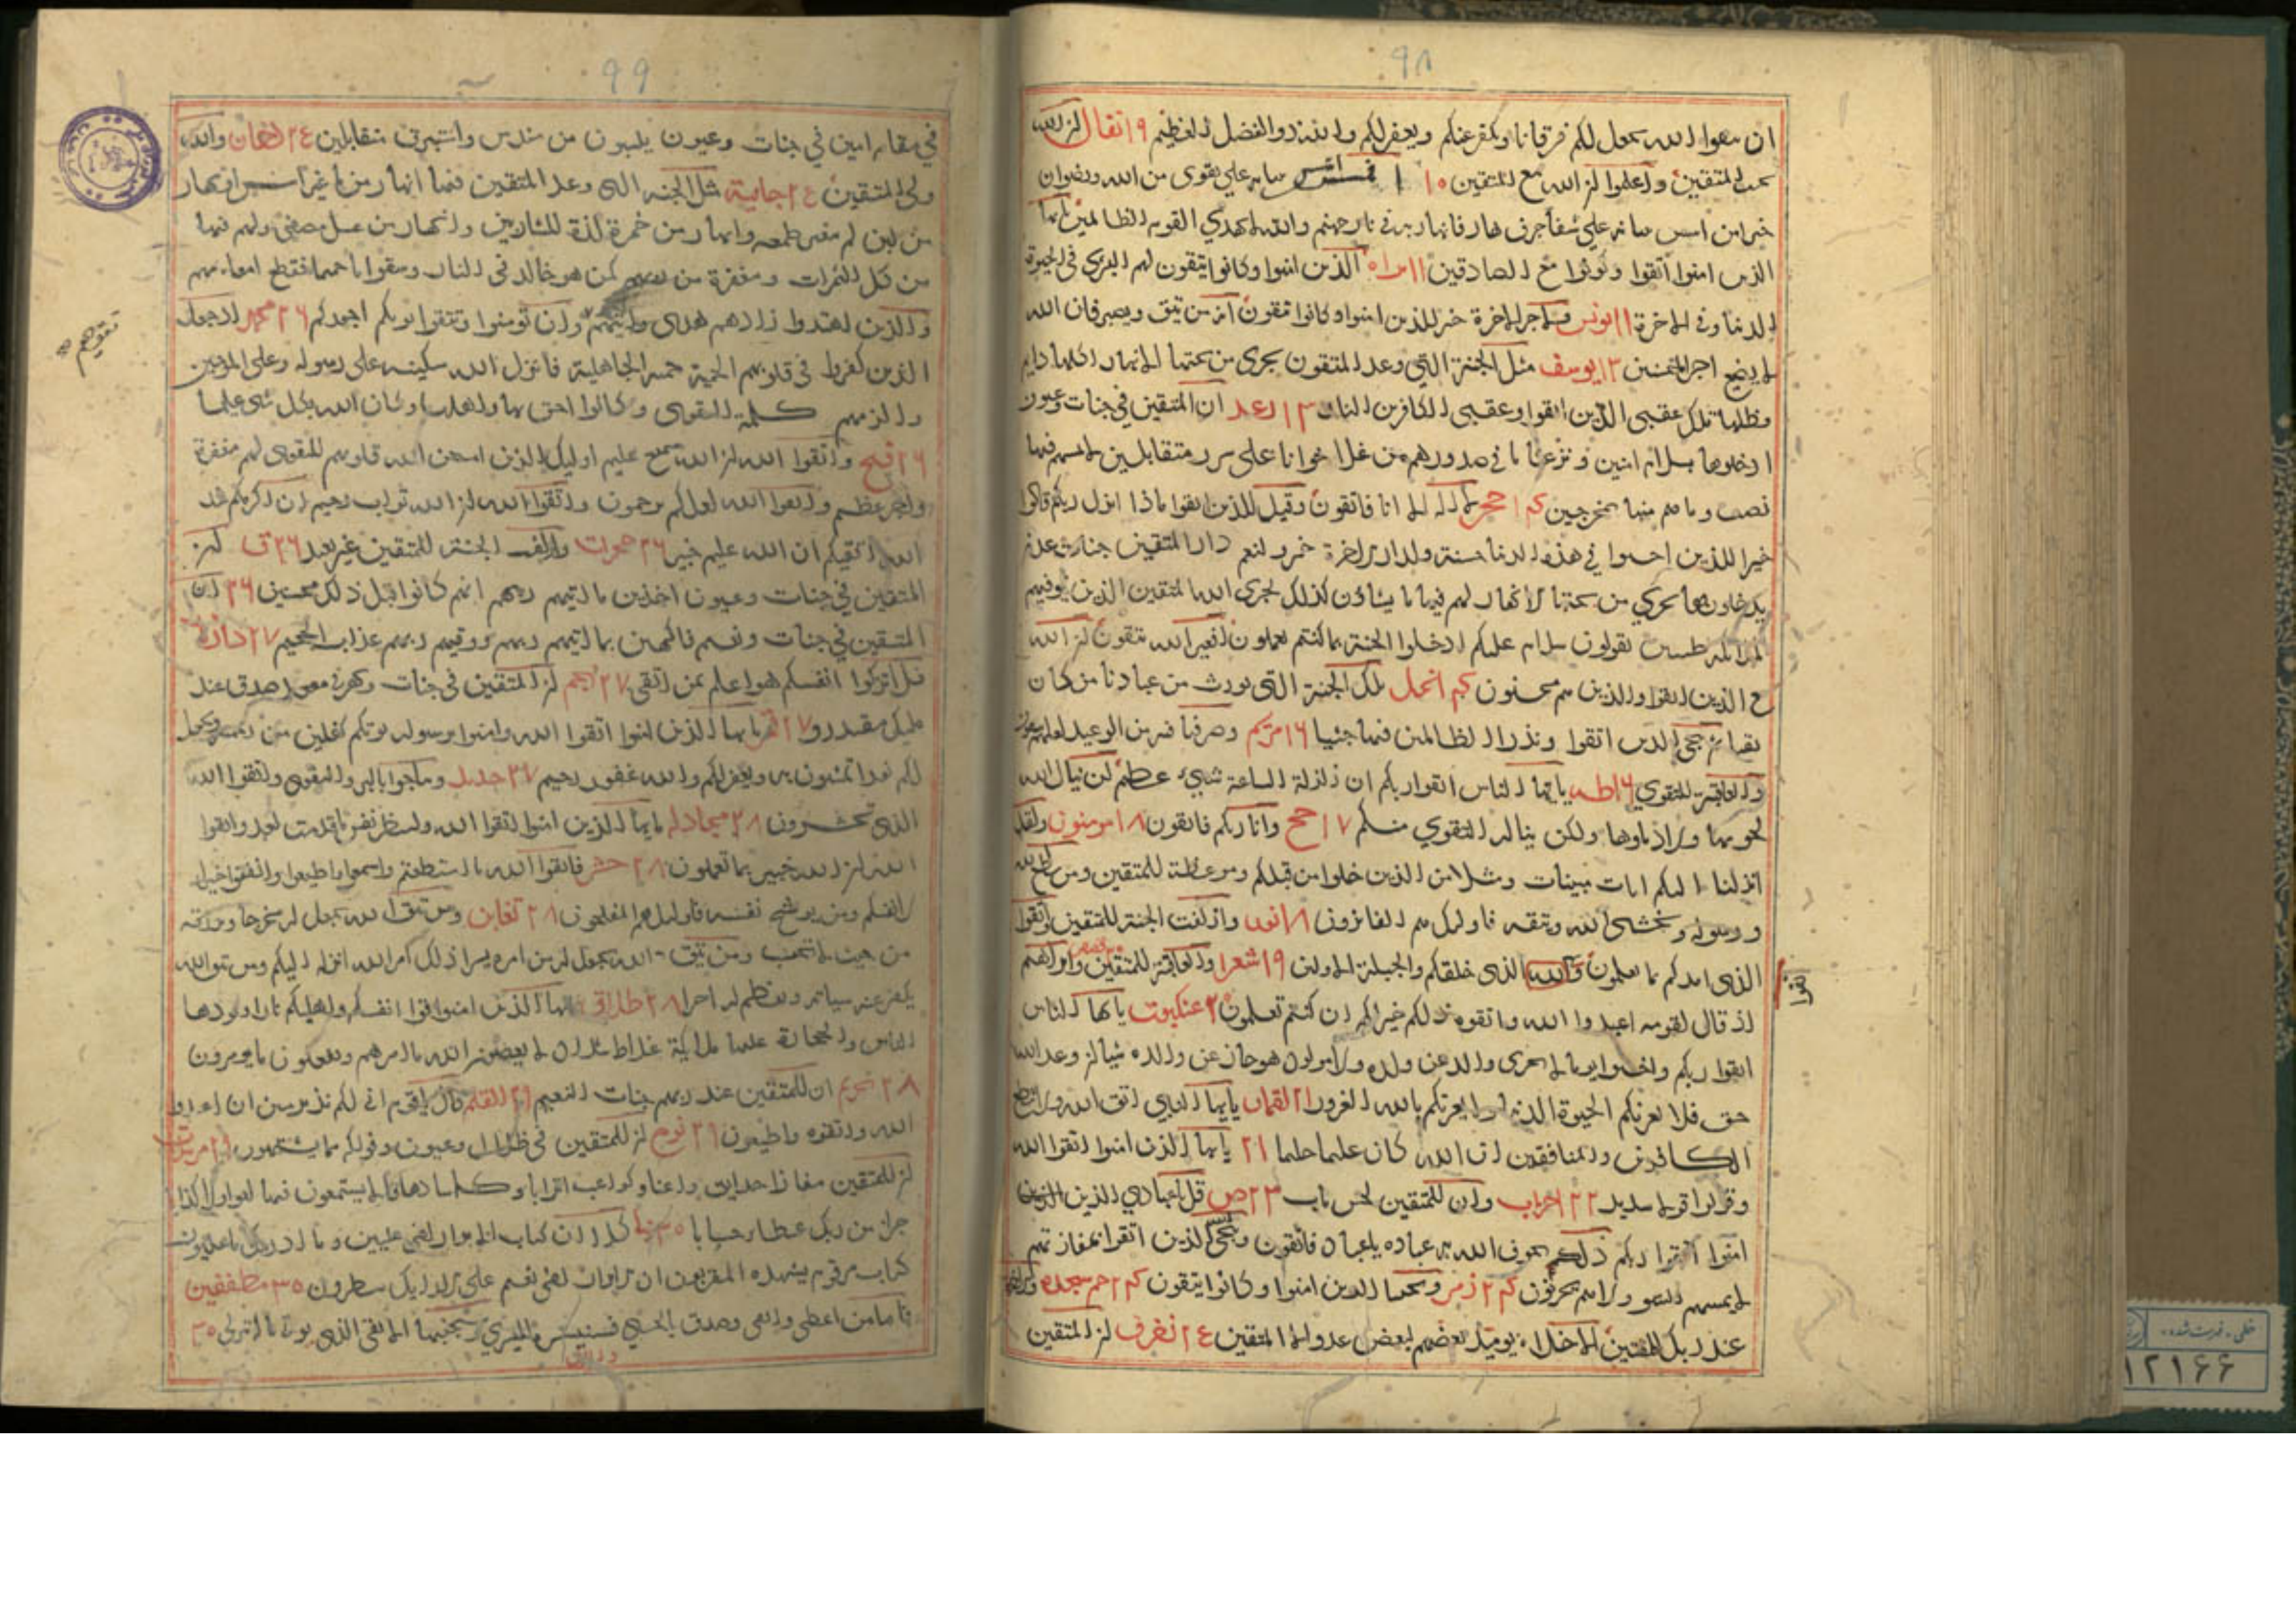 ٩٨
ان تتقوا الله يجعل لكم فرقانا ويكفر عنكم ويغفر لكم والله ذو الفضل العظيم ٩ انفال ان الله
يحب المتقين واعلموا ان الله مع المتقين ١٠ افمن اسس بنيانه على تقوى من الله ورضوان
خير امن اسس بنيانه على شفا جرف هار فانهار به في نار جهنم والله لا يهدي القوم الظالمين يا ايها
الذين امنوا اتقوا وكونوا مع الصادقين ١١ براه الذين امنوا وكانوا يتقون لهم البشرى في الحيوة
الدنيا وفي الاخرة ١١ يونس ولاجر الاخرة خير للذين امنوا وكانوا يتقون انه من يتق ويصبر فان الله
لا يضيع اجر المحسنين ١٣ يوسف مثل الجنة التي وعد المتقون يجرى من تحتها الانهار اكلها دايم
وظلها تلك عقبى الذين اتقوا وعقبى الكافرين النار ١٣ رعد ان المتقين في جنات وعيون
ادخلوها بسلام امنين ونزعنا ما في صدورهم من غل اخوانا على سرر متقابلين لا يمسهم فيها
نصب وما هم منها بمخرجين حجر لا اله الا انا فاتقون وقيل للذين اتقوا ماذا انزل ربكم قالوا
خيرا للذين احسنوا في هذه الدنيا حسنة ولدار الاخرة خير ولنعم دار المتقين جنات عدن
يدخلونها تجري من تحتها الانهار لهم فيها ما يشاؤن كذلك يجزى الله المتقين الذين توفيهم
الملائكة طيبين يقولون سلام عليكم ادخلوا الجنة بما كنتم تعملون افغير الله تتقون ان الله
مع الذين اتقوا والذين هم محسنون النحل تلك الجنة التي نورث من عبادنا من كان
تقيا ثم ننجى الذين اتقوا ونذر الظالمين فيها جثيا ١٦ مريم وصرفنا فيه من الوعيد لعلهم يتقون
والعاقبة للتقوي ١٦ طه يا ايها الناس اتقوا ربكم ان زلزلة الساعة شيء عظيم لن ينال الله
لحومها ولا دماؤها ولكن يناله التقوي منكم ١٧ حج وانا ربكم فاتقون ١٨ مومنون ولقد
انزلنا اليكم ايات مبينات ومثلا من الذين خلوا من قبلكم وموعظة للمتقين ومن يطع الله
ورسوله ويخشى الله ويتقه فاولئك هم الفائزون ١٨ نور وازلفت الجنة للمتقين واتقوا
الذى امدكم بما تعلمون واتقوا الذى خلقكم والجبلة الاولين ١٩ شعرا والعاقبة للمتقين وابراهيم
اذ قال لقومه اعبدوا الله واتقوه ذلكم خير لكم ان كنتم تعلمون ٢٠ عنكبوت يا ايها الناس
اتقوا ربكم واخشوا يوما لا يجزى والد عن ولده ولا مولود هو جاز عن والده شيئا ان وعد الله
حق فلا تغرنكم الحيوة الدنيا ولا يغرنكم بالله الغرور ٢١ لقمان يا ايها النبي اتق الله ولا تطع
الكافرين والمنافقين ان الله كان عليما حكيما ٢١ يا ايها الذين امنوا اتقوا الله
وقولوا قولا سديد ٢٢ احزاب وان للمتقين لحسن ماب ٢٣ ص قل يا عبادي الذين
امنوا اتقوا ربكم ذلك يخوف الله به عباده يا عباد فاتقون وينجى الذين اتقوا بمفازتهم
لا يمسهم السوء ولا هم يحزنون زمر ونجينا الذين امنوا وكانوا يتقون حم سجده والاخرة
عند ربك للمتقين الاخلاء يوميذ بعضهم لبعض عدو الا المتقين زخرف ان المتقين
٩٩
في مقام امين في جنات وعيون يلبسون من سندس واستبرق متقابلين دخان والله
ولى المتقين جاثية مثل الجنه التى وعد المتقين فيها انهار من ما غير اسن وانهار
من لبن لم يتغير طعمه وانهار من خمر لذة للشاربين وانهار من عسل مصفى ولهم فيها
من كل الثمرات ومغفرة من ربهم كمن هو خالد في النار وسقوا ما حميما فقطع امعاءهم
والذين اهتدوا زادهم هدى وان تومنوا وتتقوا يوتكم اجوركم ٢٦ محمد اذ جعل
الذين كفروا في قلوبهم الحمية حمية الجاهلية فانزل الله سكينته على رسوله وعلى المومنين
والزمهم كلمة التقوى وكانوا احق بها واهلها وكان الله بكل شى عليما
٢٦ فتح واتقوا الله ان الله سميع عليم اوليك الذين امتحن الله قلوبهم للتقوى لهم مغفرة
واجر عظيم واتقوا الله لعلكم ترحمون واتقوا الله ان الله تواب رحيم ان اكرمكم عند
الله اتقيكم ان الله عليم خبير ٢٦ حجرات وازلفت الجنة للمتقين غير بعيد ٢٦ ق ان
المتقين في جنات وعيون اخذين ما اتيهم ربهم انهم كانوا قبل ذلك محسنين ٢٦ ان
المتقين في جنات ونعيم فاكهين بما اتيهم ربهم ووقيهم ربهم عذاب الجحيم ٢٧
فلا تزكوا انفسكم هو اعلم بمن اتقى ٢٧ نجم ان المتقين في جنات ونهر في مقعد صدق عند
مليك مقتدر ٢٧ قمر يا ايها الذين امنوا اتقوا الله وامنوا برسوله يوتكم كفلين من رحمته ويجعل
لكم نورا تمشون به ويغفر لكم والله غفور رحيم ٢٧ حديد وتناجوا بالبر والتقوى واتقوا الله
الذى اليه تحشرون ٢٨ مجادله يا ايها الذين امنوا اتقوا الله ولتنظر نفس ما قدمت لغد واتقوا
الله ان الله خبير بما تعملون ٢٨ حشر فاتقوا الله ما استطعتم واسمعوا واطيعوا وانفقوا خيرا
لانفسكم ومن يوق شح نفسه فاولئك هم المفلحون ٢٨ تغابن ومن يتق الله يجعل له مخرجا ويرزقه
من حيث لا يحتسب ومن يتق الله يجعل له من امره يسرا ذلك امر الله انزله اليكم ومن يتق الله
يكفر عنه سياته ويعظم له اجرا ٢٨ طلاق يا ايها الذين امنوا قوا انفسكم واهليكم نارا وقودها
الناس والحجارة عليها ملائكة غلاظ شداد لا يعصون الله ما امرهم ويفعلون ما يومرون
٢٨ تحريم ان للمتقين عند ربهم جنات النعيم القلم قال يا قوم انى لكم نذير مبين ان اعبدوا
الله واتقوه واطيعون ٢٩ نوح ان المتقين في ظلال وعيون وفواكه مما يشتهون ٢٩ مرسلات
ان للمتقين مفازا حدايق واعنابا وكواعب اترابا وكاسا دهاقا لا يسمعون فيها لغوا ولا كذابا
جزاء من ربك عطاء حسابا كلا ان كتاب الابرار لفى عليين وما ادريك ما عليون
كتاب مرقوم يشهده المقربون ان الابرار لفى نعيم على الارايك ينظرون ٣٠ مطففين
فاما من اعطى واتقى وصدق بالحسنى فسنيسره لليسرى وسيجنبها الاتقى الذى يوتى ماله يتزكى ٣٠
خطی ـ فهرست شده
١٢١٦۶